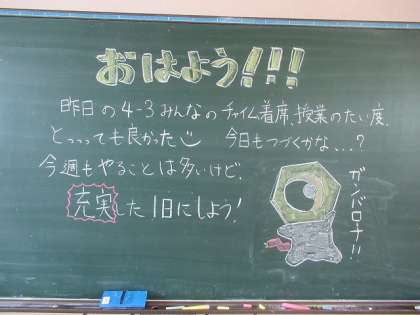 おはよう!!!
昨日の4-3みんなのチャイム着席、授業のたい度、
とっっっても良かった 今日もつづくかな…?
今週もやることは多いけど、
充実した1日にしよう!
ガンバロナ!!